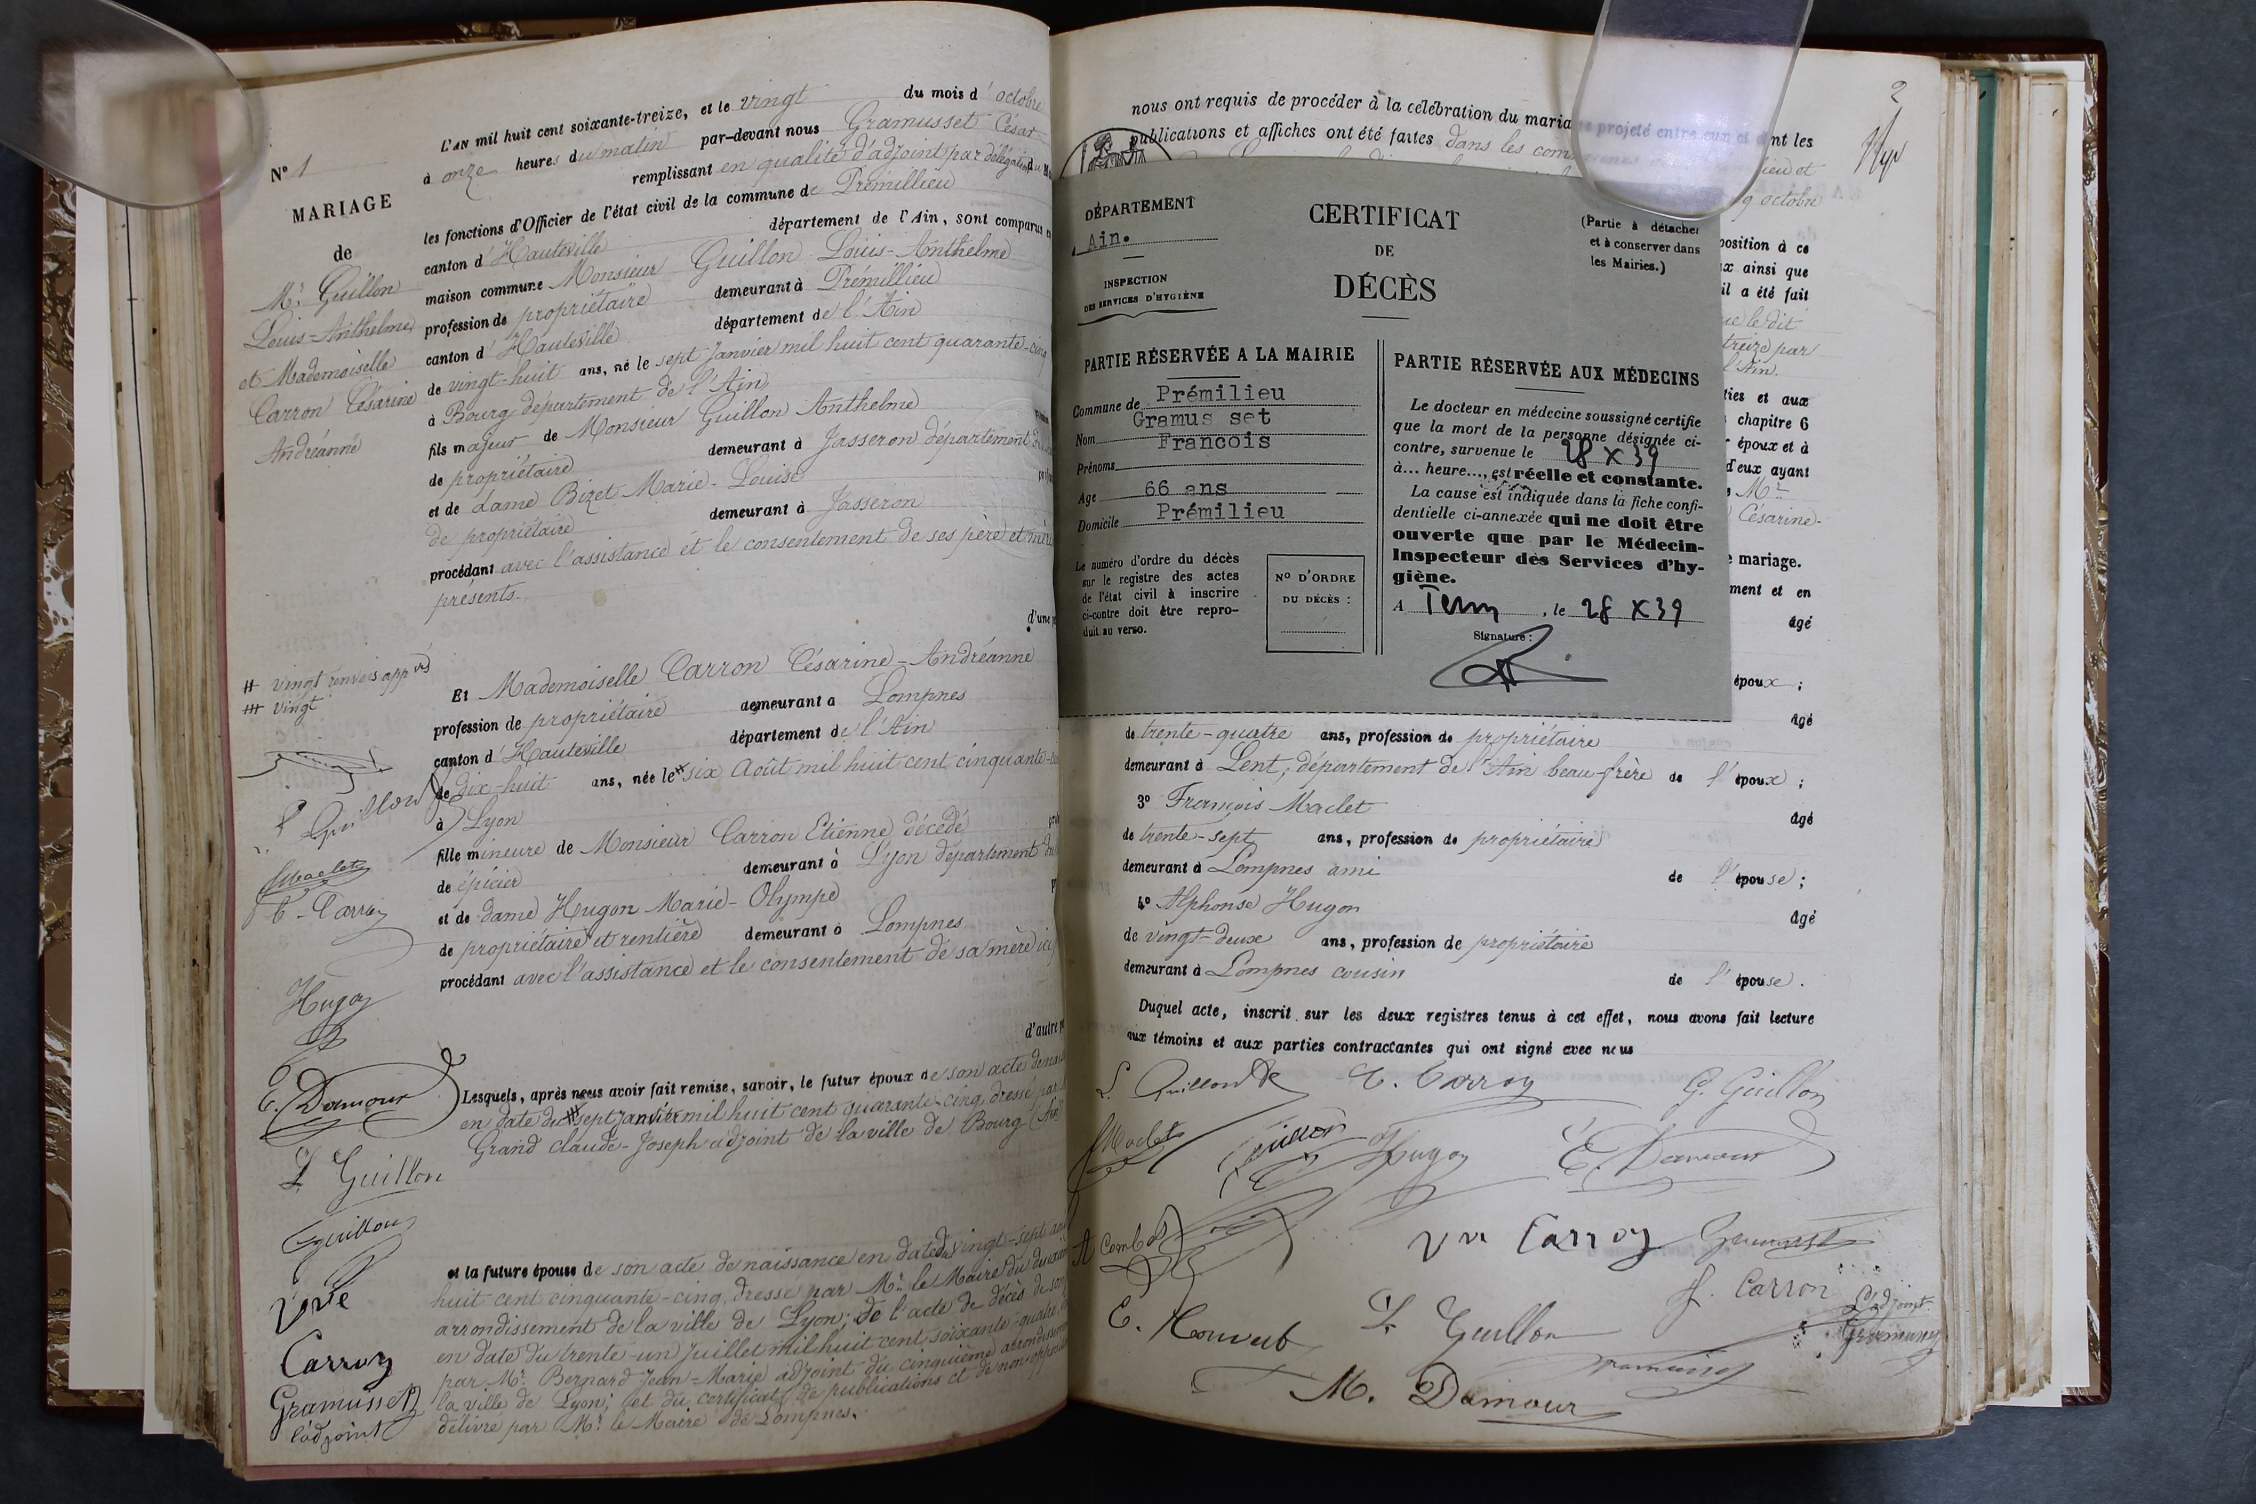 N° 1
MARIAGE
de
Mr. Guillon
Louis-Anthelme
et Mademoiselle
Carron Césarine
Andréanne
# vingt renvois appvés
## vingt
L. Guillon
Maclet
C. Carron
Hugon
E. Damour
L. Guillon
Guillon
Vve
Carron
Gramusset
l'adjoint
L'AN mil huit cent soixante-treize, et le vingt du mois d'octobre
à onze heures du matin par-devant nous Gramusset César
remplissant en qualité d'adjoint par délégation du
les fonctions d'Officier de l'état civil de la commune de Prémillieu
canton d'Hauteville département de l'Ain, sont comparus en
maison commune Monsieur Guillon Louis-Anthelme
profession de propriétaire demeurant à Prémillieu
canton d'Hauteville département de l'Ain
de vingt-huit ans, né le sept Janvier mil huit cent quarante-cinq
à Bourg département de l'Ain
fils majeur de Monsieur Guillon Anthelme
de propriétaire demeurant à Jasseron département
et de dame Bizet Marie-Louise
de propriétaire demeurant à Jasseron
procédant avec l'assistance et le consentement de ses père et mère
présents.
d'une
Et Mademoiselle Carron Césarine-Andréanne
profession de propriétaire demeurant à Lompnes
canton d'Hauteville département de l'Ain
de dix-huit ans, née le # six Août mil huit cent cinquante-
à Lyon
fille mineure de Monsieur Carron Etienne décédé
de épicier demeurant à Lyon département du
et de dame Hugon Marie-Olympe
de propriétaire et rentière demeurant à Lompnes
procédant avec l'assistance et le consentement de sa mère ici
d'autre
Lesquels, après nous avoir fait remise, savoir, le futur époux de son acte de
en date du ## sept janvier mil huit cent quarante-cinq dressé par
Grand Claude-Joseph adjoint de la ville de Bourg (Ain)
et la future épouse de son acte de naissance en date du vingt-sept
huit cent cinquante-cinq dressé par Mr. le Maire du
arrondissement de la ville de Lyon; de l'acte de décès de son
en date du trente-un juillet mil huit cent soixante-quatre
par Mr. Bernard Jean-Marie adjoint du cinquième arrondissement
la ville de Lyon; et du certificat de publications et de non opposition
délivré par Mr. le Maire de Lompnes.
2
nous ont requis de procéder à la célébration du mariage projeté entre eux et dont les
publications et affiches ont été faites dans les com
ieu et
19 octobre
position à ce
ux ainsi que
il a été fait
ue le dit
treize par
l'Ain.
ties et aux
chapitre 6
époux et à
d'eux ayant
Mr
Césarine-
e mariage.
ment et en
âgé
époux ;
âgé
DÉPARTEMENT
Ain.
INSPECTION
DES SERVICES D'HYGIÈNE
CERTIFICAT
DE
DÉCÈS
(Partie à détacher
et à conserver dans
les Mairies.)
PARTIE RÉSERVÉE A LA MAIRIE
Commune de Prémilieu
Nom Gramus set
Prénoms Francois
Age 66 ans
Domicile Prémilieu
Le numéro d'ordre du décès
sur le registre des actes
de l'état civil à inscrire
ci-contre doit être repro-
duit au verso.
N° D'ORDRE
DU DÉCÈS :
PARTIE RÉSERVÉE AUX MÉDECINS
Le docteur en médecine soussigné certifie
que la mort de la personne désignée ci-
contre, survenue le 28 X 39
à... heure..., est réelle et constante.
La cause est indiquée dans la fiche confi-
dentielle ci-annexée qui ne doit être
ouverte que par le Médecin-
Inspecteur des Services d'hy-
giène.
A , le 28 X 39
Signature :
de trente-quatre ans, profession de propriétaire
demeurant à Lent, département de l'Ain beau-frère de l'époux ;
3° François Maclet âgé
de trente-sept ans, profession de propriétaire
demeurant à Lompnes ami de l'épouse ;
4° Alphonse Hugon âgé
de vingt-deux ans, profession de propriétaire
demeurant à Lompnes cousin de l'épouse.
Duquel acte, inscrit sur les deux registres tenus à cet effet, nous avons fait lecture
aux témoins et aux parties contractantes qui ont signé avec nous
L. Guillon C. Carron G. Guillon
Maclet Guillon Hugon E. Damour
Vve Carron Gramusset
J. Carron
L. Guillon
l'adjoint
Gramusset
M. Damour